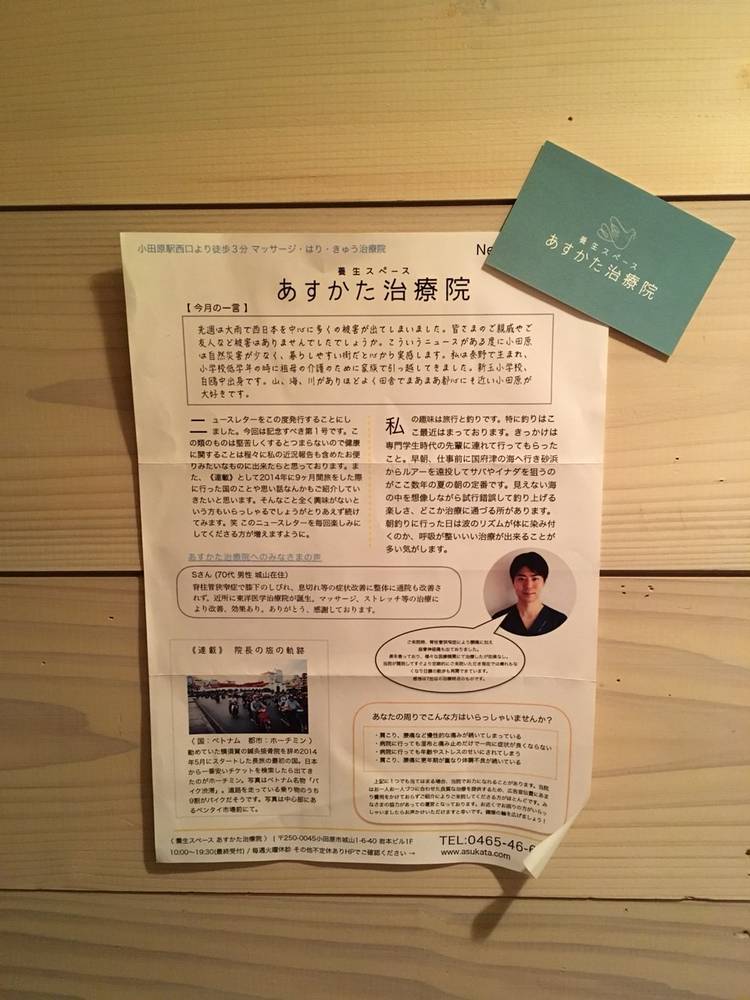 小田原駅西口より徒歩3分 マッサージ・はり・きゅう治療院
Ne
養生スペース
あすかた治療院
養生スペース
あすかた治療院
【 今月の一言 】
先週は大雨で西日本を中心に多くの被害が出てしまいました。皆さまのご親戚やご
友人など被害はありませんでしたでしょうか。こういうニュースがある度に小田原
は自然災害が少なく、暮らしやすい街だと心から実感します。私は秦野で生まれ、
小学校低学年の時に祖母の介護のために家族で引っ越してきました。新玉小学校、
白鴎中出身です。山、海、川がありほどよく田舎でまあまあ都心にも近い小田原が
大好きです。
ニュースレターをこの度発行することにし
ました。今回は記念すべき第1号です。こ
の類のものは堅苦しくするとつまらないので健康
に関することは程々に私の近況報告も含めたお便
りみたいなものに出来たらと思っております。ま
た、《連載》として2014年に9ヶ月間旅をした際
に行った国のことや思い話なんかもご紹介してい
きたいと思います。そんなこと全く興味がないと
いう方もいらっしゃるでしょうがとりあえず続け
てみます。笑 このニュースレターを毎回楽しみに
してくださる方が増えますように。
私の趣味は旅行と釣りです。特に釣りはこ
こ最近はまっております。きっかけは
専門学生時代の先輩に連れて行ってもらった
こと。早朝、仕事前に国府津の海へ行き砂浜
からルアーを遠投してサバやイナダを狙うの
がここ数年の夏の朝の定番です。見えない海
の中を想像しながら試行錯誤して釣り上げる
楽しさ、どこか治療に通づる所があります。
朝釣りに行った日は波のリズムが体に染み付
くのか、呼吸が整いいい治療が出来ることが
多い気がします。
あすかた治療院へのみなさまの声
Sさん (70代 男性 城山在住)
脊柱管狭窄症で膝下のしびれ、息切れ等の症状改善に整体に通院も改善さ
れず。近所に東洋医学治療院が誕生。マッサージ、ストレッチ等の治療に
より改善、効果あり。ありがとう、感謝しております。
ご来院時、脊柱管狭窄症により腰痛に加え
坐骨神経痛も出ておりました。
《連載》 院長の旅の軌跡
（国：ベトナム 都市：ホーチミン）
勤めていた横須賀の鍼灸接骨院を辞め2014
年5月にスタートした長旅の最初の国。日本
から一番安いチケットを検索したら出てき
たのがホーチミン。写真はベトナム名物「バ
イク渋滞」。道路を走っている乗り物のうち
9割がバイクだそうです。写真は中心部にあ
るベンタイ市場前にて。
あなたの周りでこんな方はいらっしゃいませんか？
・肩こり、腰痛など慢性的な痛みが続いてしまっている
・病院に行っても湿布と痛み止めだけで一向に症状が良くならない
・病院に行っても年齢やストレスのせいにされてしまう
・肩こり、腰痛に更年期が重なり体調不良が続いている
上記に1つでも当てはまる場合、当院でお力になれることがあります。当院
（ 養生スペース あすかた治療院 ）｜〒250-0045小田原市城山1-6-40 岩本ビル1F
10:00〜19:30(最終受付) / 毎週火曜休診 その他不定休ありHPでご確認ください →
TEL:0465-46-
www.asukata.com